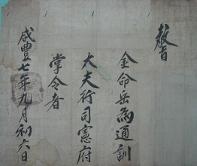 教旨
金命岳為通訓
大夫行司憲府
掌令者
咸豊七年九月初六日